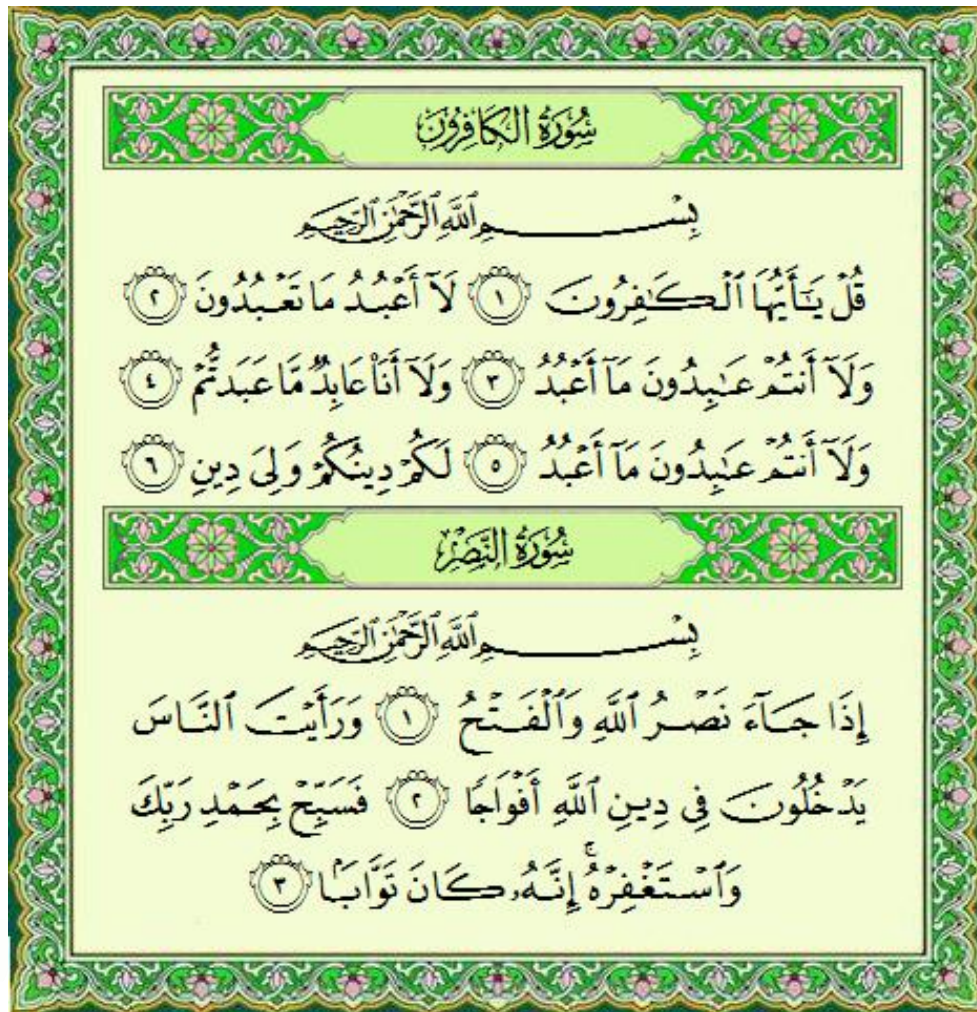 سُورَةُ الكَافِرُونَ
بِسْمِ ٱللَّهِ ٱلرَّحْمَٰنِ ٱلرَّحِيمِ
قُلْ يَٰٓأَيُّهَا ٱلْكَٰفِرُونَ ١ لَآ أَعْبُدُ مَا تَعْبُدُونَ ٢
وَلَآ أَنتُمْ عَٰبِدُونَ مَآ أَعْبُدُ ٣ وَلَآ أَنَا۠ عَابِدٌ مَّا عَبَدتُّمْ ٤
وَلَآ أَنتُمْ عَٰبِدُونَ مَآ أَعْبُدُ ٥ لَكُمْ دِينُكُمْ وَلِىَ دِينِ ٦
سُورَةُ النَّصْرِ
بِسْمِ ٱللَّهِ ٱلرَّحْمَٰنِ ٱلرَّحِيمِ
إِذَا جَآءَ نَصْرُ ٱللَّهِ وَٱلْفَتْحُ ١ وَرَأَيْتَ ٱلنَّاسَ
يَدْخُلُونَ فِى دِينِ ٱللَّهِ أَفْوَاجًا ٢ فَسَبِّحْ بِحَمْدِ رَبِّكَ
وَٱسْتَغْفِرْهُ ۚ إِنَّهُۥ كَانَ تَوَّابًۢا ٣